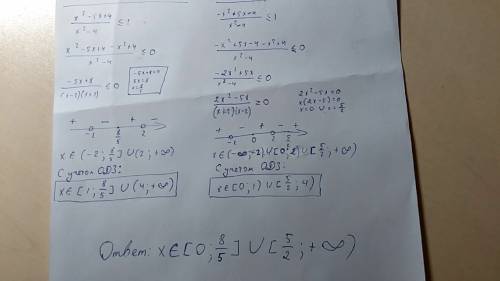 x²-5x+4 / x²-4 ≤ 1
x²-5x+4-x²+4 / x²-4 ≤ 0
-5x+8 / (x-2)(x+2) ≤ 0
-5x+8=0
5x=8
x=8/5
+ - + -
-2 8/5 2
x∈(-2; 8/5] ∪ (2; +∞)
С учетом ОДЗ:
x∈[1; 8/5] ∪ (4; +∞)
≤ 1
-x²+5x-4-x²+4 / x²-4 ≤ 0
-2x²+5x / x²-4 ≤ 0
2x²-5x / (x+2)(x-2) ≥ 0
2x²-5x=0
x(2x-5)=0
+ - + - +
0 2 5/2
x∈(-∞;-2) ∪ [0;2) ∪ [5/2; +∞)
С учетом ОДЗ:
x∈[0; 1) ∪ [5/2; 4)
Ответ: x∈[0; 8/5] ∪ [5/2; +∞)